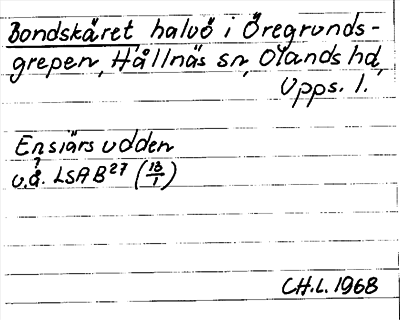 Bondskäret halvö i Öregrunds-
grepen, Hållnäs sn, Olands hd,
Upps. l.
Ensiärs udden
u.å. LSA B27 (18/1)
CH.L. 1968